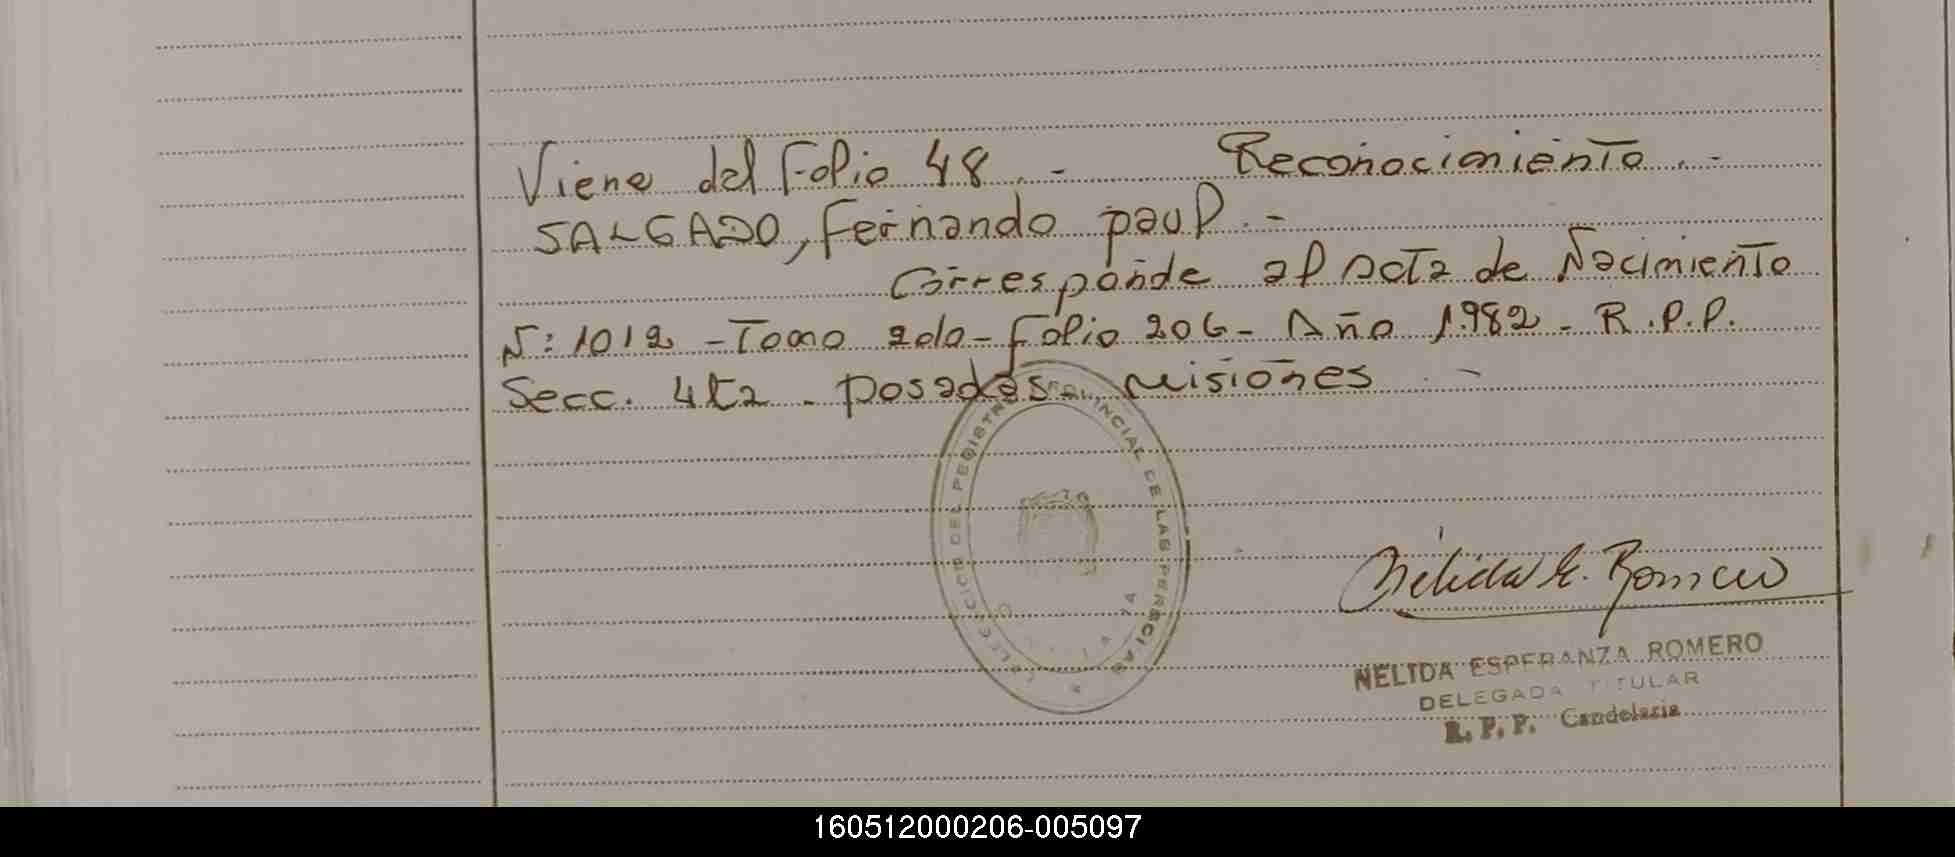 Viene del Folio 48.- Reconocimiento.-
SALGADO, Fernando paul.-
Corresponde al Acta de Nacimiento
N: 1012 - Tomo 2do - Folio 206 - Año 1.982 - R.P.P.
Secc. 4ta - posadas, misiones -
DEL REGISTRO PROVINCIAL DE LAS PERSONAS
Nélida E. Romero
NELIDA ESPERANZA ROMERO
DELEGADA TITULAR
R. P. P. Candelaria
160512000206-005097